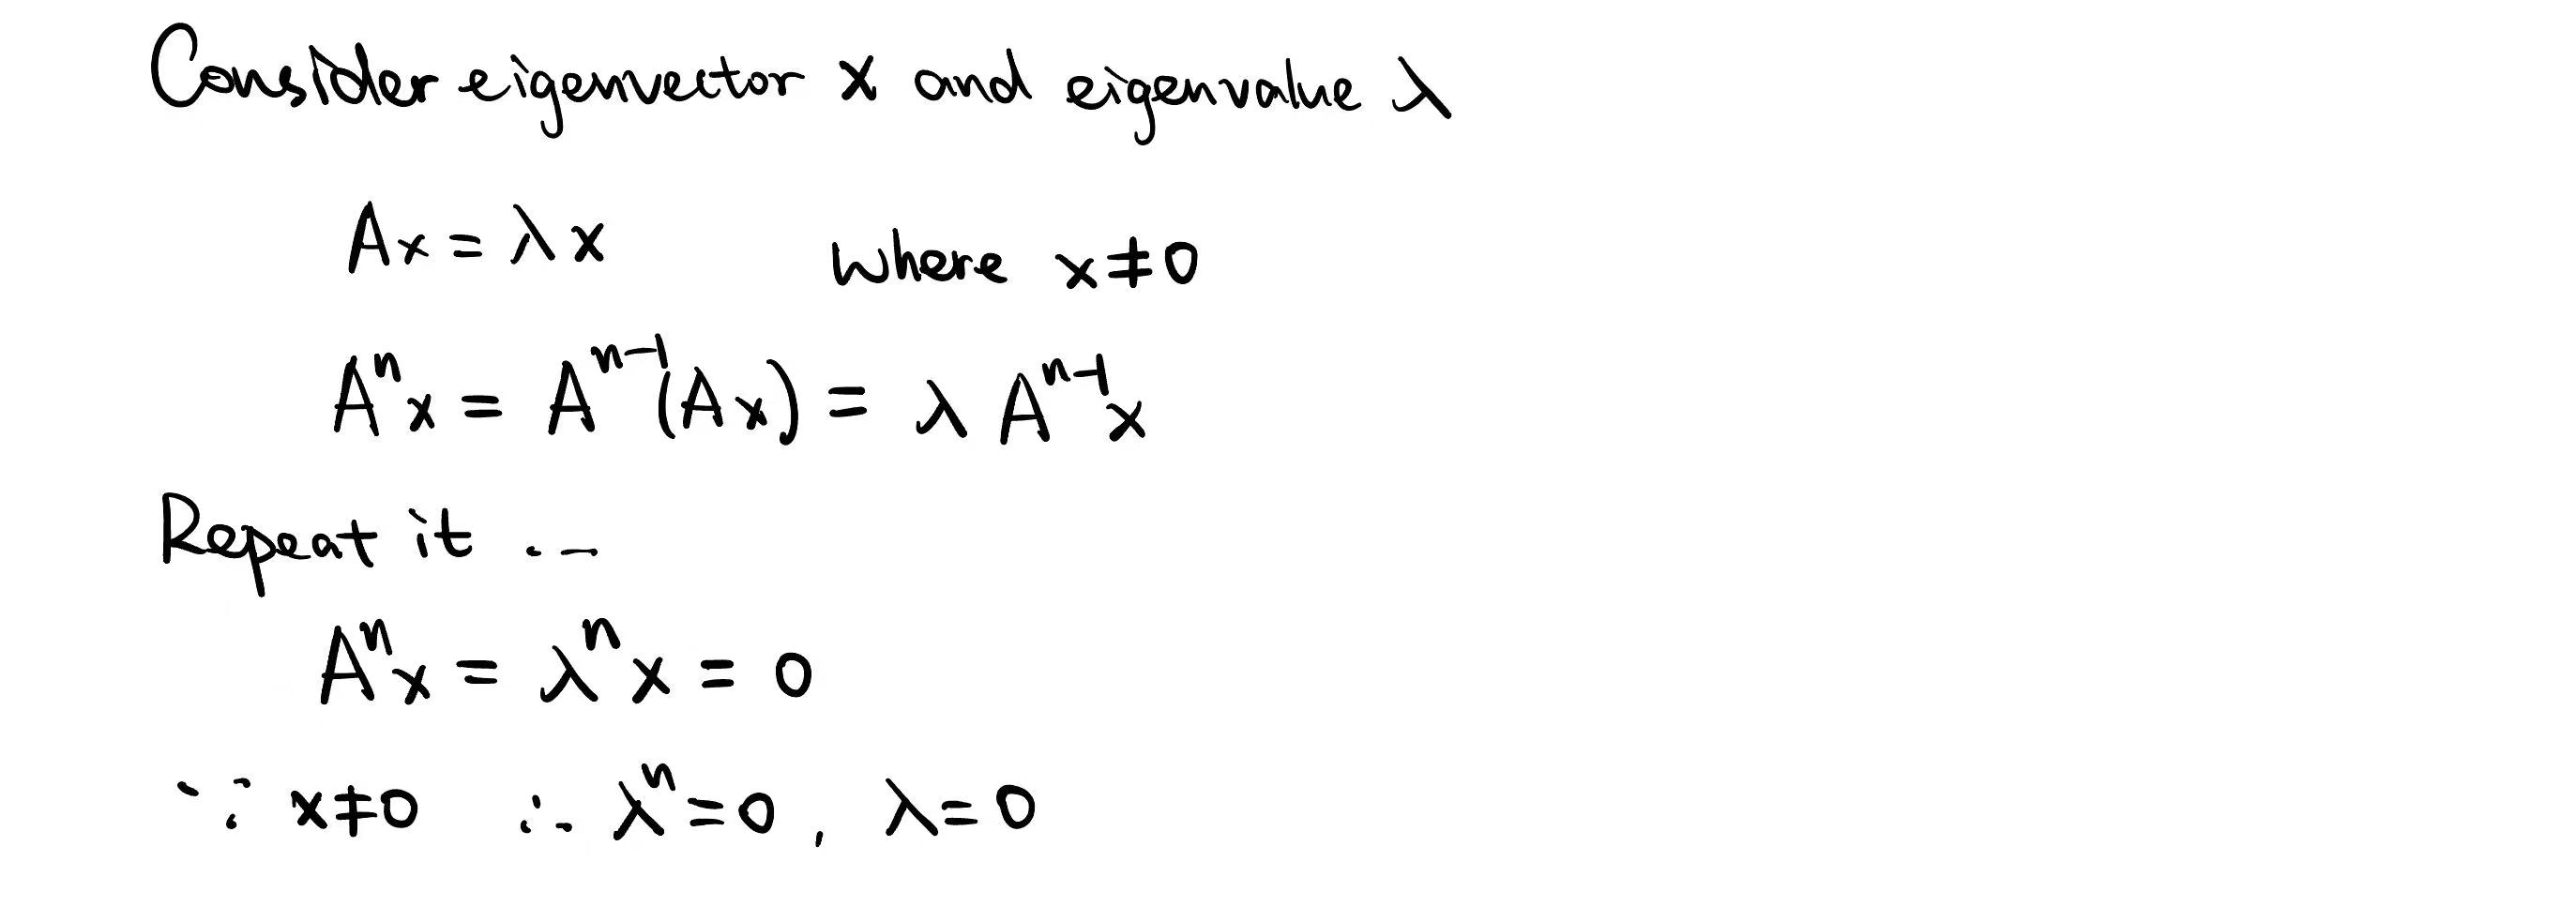 Consider eigenvector x and eigenvalue λ
Ax = λx where x ≠ 0
Aⁿx = Aⁿ⁻¹(Ax) = λAⁿ⁻¹x
Repeat it ...
Aⁿx = λⁿx = 0
∵ x ≠ 0 ∴ λⁿ = 0, λ = 0